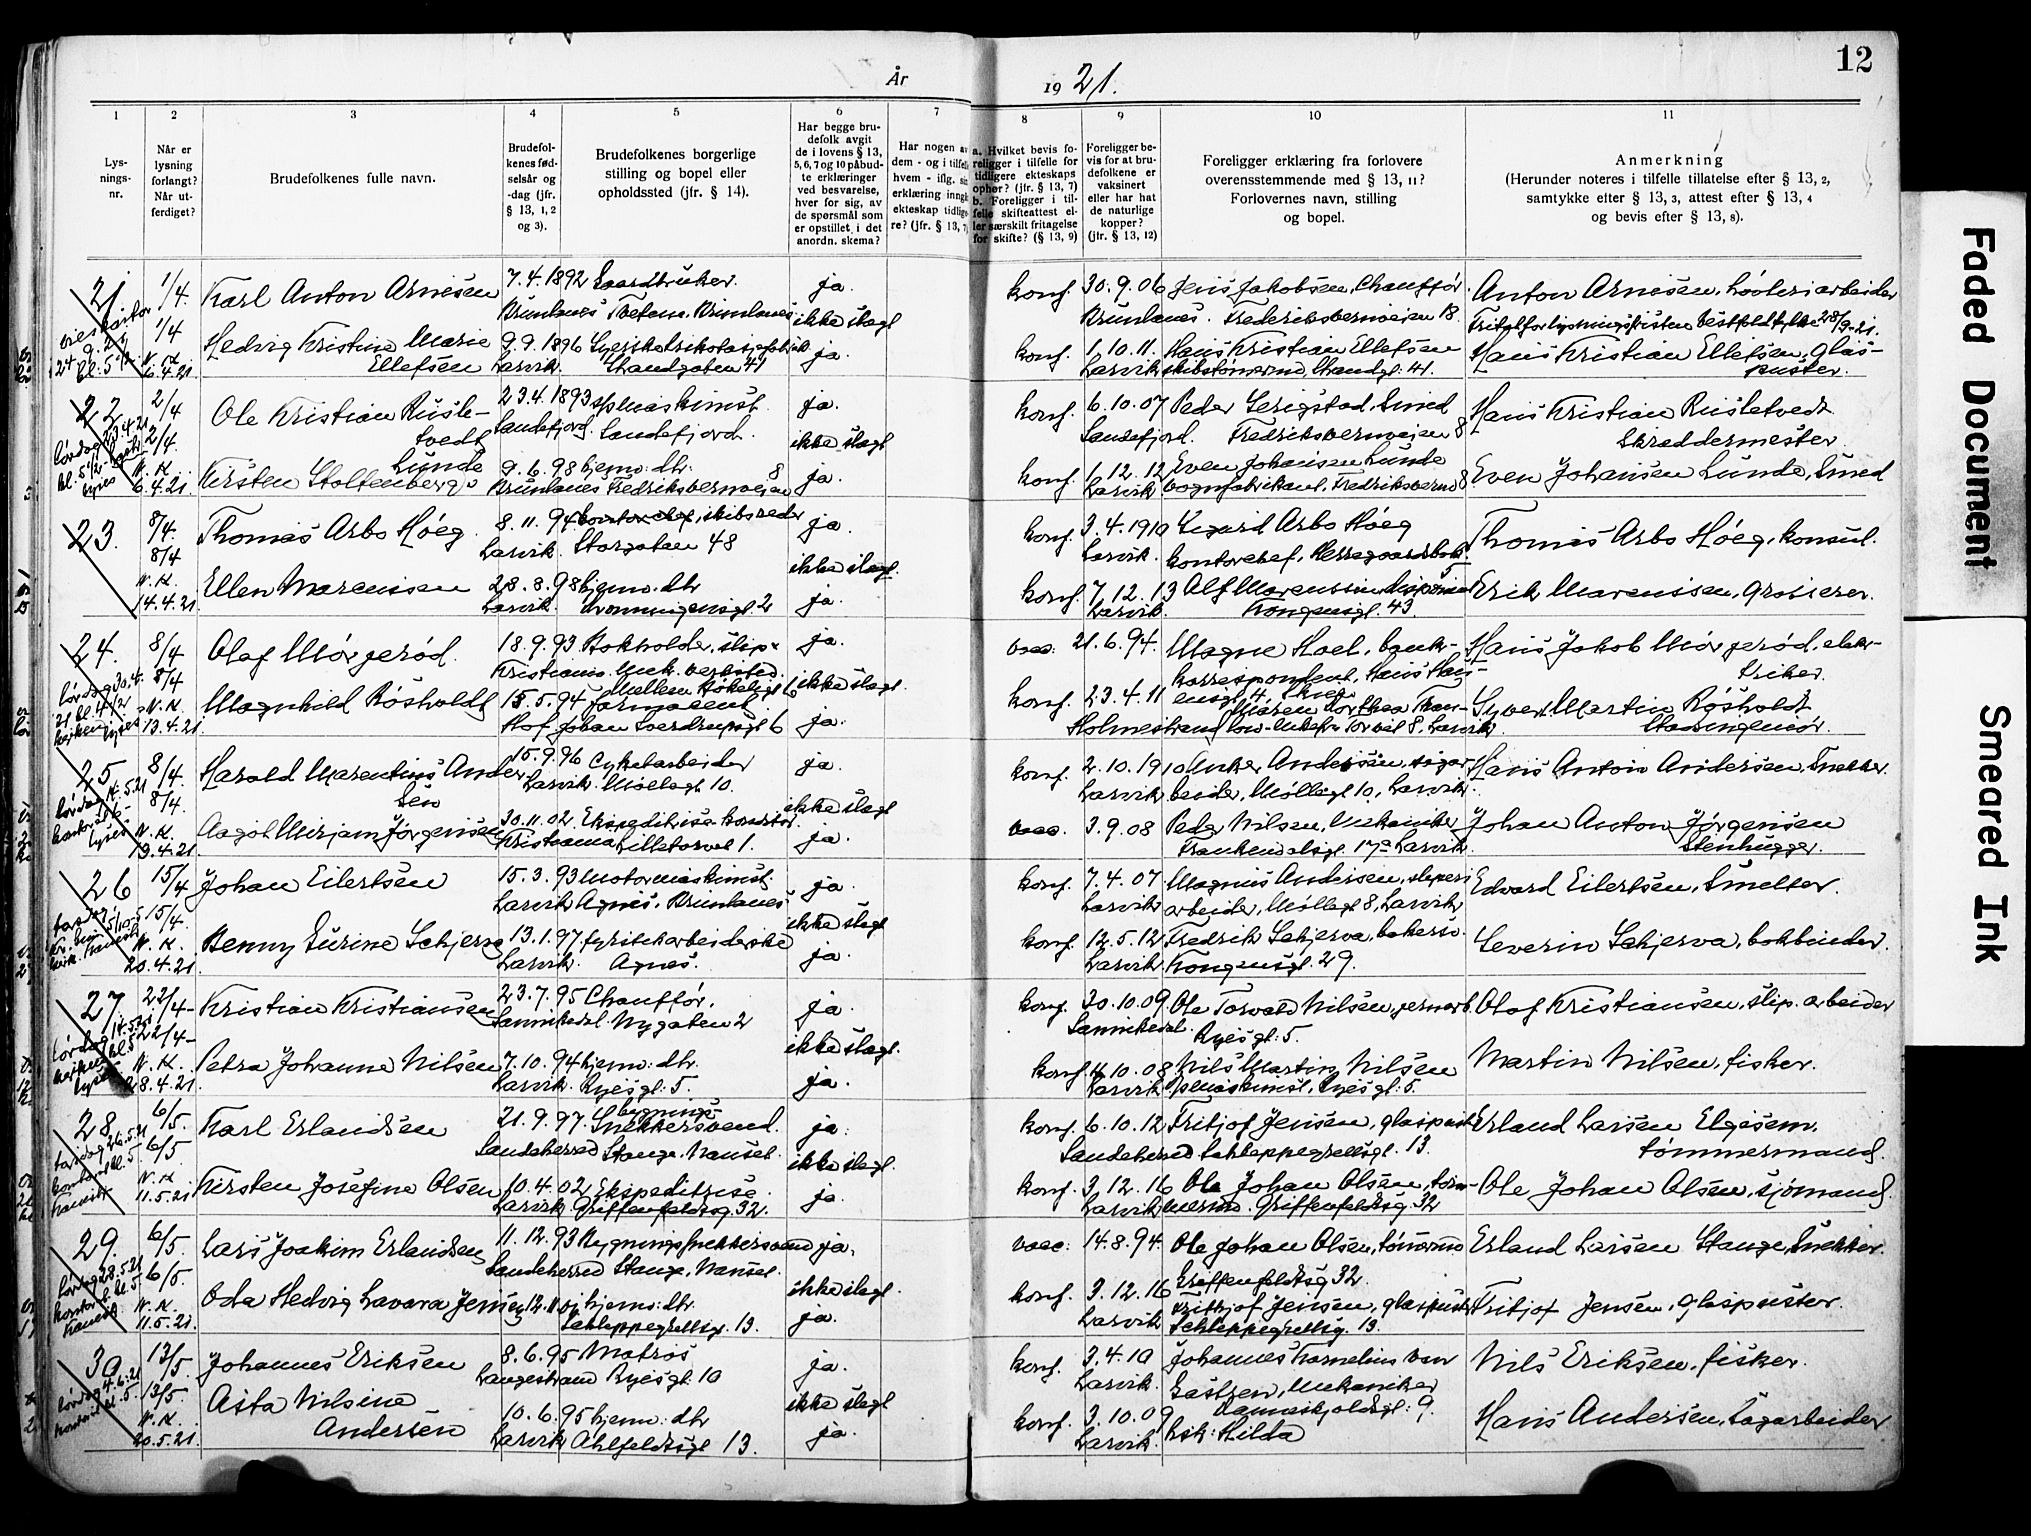 År 1921.
12
1 2 3 4 5 6 7 8 9 10 11
Lys-
nings-
nr.
Når er
lysning
forlangt?
Når ut-
ferdiget?
Brudefolkenes fulle navn.
Brudefol-
kenes fød-
selsår og
-dag (jfr.
§ 13, 1, 2
og 3).
Brudefolkenes borgerlige
stilling og bopel eller
opholdssted (jfr. § 14).
Har begge bru-
defolk avgit
de i lovens § 13,
5, 6, 7 og 10 påbud-
te erklæringer
ved besvarelse,
hver for sig, av
de spørsmål som
er opstillet i det
anordn. skema?
Har nogen av
dem - og i tilfelle
hvem - iflg. sin
erklæring inngå
ekteskap tidlige-
re? (jfr. § 13, 7)
a. Hvilket bevis fo-
religger i tilfelle for
tidligere ekteskaps
ophør? (jfr. § 13, 7)
b. Foreligger i til-
felle skifteattest el-
ler særskilt fritagelse
for skifte? (§ 13, 9)
Foreligger be-
vis for at bru-
defolkene er
vaksinert
eller har hat
de naturlige
kopper?
(jfr. § 13, 12)
Foreligger erklæring fra forlovere
overensstemmende med § 13, 11?
Forlovernes navn, stilling
og bopel.
Anmerkning
(Herunder noteres i tilfelle tillatelse efter § 13, 2,
samtykke efter § 13, 3, attest efter § 13, 4
og bevis efter § 13, 8).
21. 1/4. Karl Anton Arnesen 7.4.1892 Gaardbruker ja. konf. 30.9.06 Jens Jakobsen, Chauffør. Anton Arnesen, løsteriarbeider
Brunlanes Tvetene, Brunlanes ikke slegt Brunlanes. Frederiksvernveien 18.
1/4 Hedvig Kristine Marie 9.9.1896 ja. konf. 1.10.11. Hans Kristian Ellefsen Hans Kristian Ellefsen, glas-
6.4.21 Ellefsen Larvik. Strandgaten 41 Larvik skibstømrmd, Strandgt. 41. puster.
22 2/4 Ole Kristian Rusle- 23.4.1893 ja. konf. 6.10.07 Peder Serigstad, Smed Hans Kristian Rusletvedt
2/4. tvedt Sandefjord. Sandefjord. ikke slegt Sandefjord. Fredriksvernveien 8 Skreddermester.
Kirsten Stoltenberg Lunde 9.6.98 hjemv. dtr. ja. konf. 1.12.12 Even Johansen Lunde Even Johansen Lunde, Smed
6.4.21. Brunlanes Fredriksvernveien 8 Larvik vognfabrikant, Fredriksvernv 8.
23. 8/4. Thomas Arbo Høeg 8.11.94 kontorchef, skibsreder ja. konf. 3.4.1910 Sigurd Arbo Høeg Thomas Arbo Høeg, konsul.
8/4 Larvik. Storgaten 48 ikke slegt. Larvik. kontorchef, Herregaardsbak.
14.4.21. Ellen Marenissen 28.8.98 hjemv. dtr ja. konf. 7.12.13 Alf Marenssin, disponent Erik Marenssen, Grosserer.
Larvik. Dronningensgt. 2 Larvik. Kongensgt. 43
24. 8/4 Olaf Mørjerød. 18.9.93 Bokholder, slip- ja. vacc. 21.6.94. Magne Hoel, bank- Hans Jakob Mørjerød, elek-
8/4 Kristiania Mek. verksted. ikke slegt. korrespondent, Hans Han- triker.
Magnhild Røsholdt 15.5.94 Farmaceut ja. konf. 23.4.11 ensgt. 4, Skien Syver Martin Røsholdt
13.4.21. Hof Johan Sverdrupsgt 6 Holmestrand Torvet 8, Larvik. Stadsingeniør.
25 8/4. Harald Marentius Ander- 15.9.96 Cykelarbeider ja. konf. 2.10.1910 Anker Andersen, sigar- Hans Anton Andersen, Snekker.
8/4. sen Larvik. Møllegt. 10. ikke slegt Larvik beider, Møllegt 10, Larvik.
Aagot Mirjam Jørgensen 30.11.02. Ekspeditrise ja. vacc. 3.9.08 Peder Nilsen, Mekaniker Johan Anton Jørgensen
13.4.21. Kristiania Lilletorvet 1. Frankendalsgt. 17a Larvik. Stenhugger.
26 15/4 Johan Eilertsen 15.3.93 Motormaskinist ja. konf. 7.4.07 Magnus Andersen, sliperi- Edvard Eilertsen, Smelter.
15/4. Larvik Agnes, Brunlanes ikke slegt Larvik arbeider, Møllegt 8, Larvik
Benny Surine Schjerve 13.1.97 fyrstikarbeiderske ja. konf. 12.5.12 Fredrik Schjerva, bakersv. Severin Schjerva, bokbinder.
20.4.21. Larvik. Agnes. Larvik Kongensgt. 29.
27 22/4 Kristian Kristiansen 23.7.95 Chauffør. ja. konf. 30.10.09 Ole Torvald Nilsen, jernarb. Olaf Kristiansen, slip. arbeider
22/4 Sannikedal. Nygaten 2 ikke slegt. Sannikedal. Ryesgt. 5.
Petra Johanne Nilsen 7.10.94 hjemv. dtr ja. konf. 4.10.08 Nils Martin Nilsen Martin Nilsen, fisker.
28.4.21. Larvik. Ryesgt. 5. Larvik maskinist, Ryesgt. 5.
28 6/5. Karl Erlandsen 21.9.97. bygnings- snekkersvend. ja. konf. 6.10.12 Fritjof Jensen, glaspuster Erland Larsen Elgesem,
6/5 Sandeherred Stange, Nanset ikke slegt. Sandeherred Schleppegrellsgt. 13. tømmermand.
Kirsten Josefine Olsen 10.4.02 Ekspeditrise ja. konf. 3.12.16 Ole Johan Olsen, tøm- Ole Johan Olsen, sjømand.
11.5.21. Larvik Griffenfeldtsg 32. Larvik mermd. Griffenfeldtsg. 32
29. 6/5. Lars Joakim Erlandsen 11.12.93 Bygningssnekkersvend ja. vacc. 14.8.94. Ole Johan Olsen, tømermd Erland Larsen Stange, Snekker.
6/5. Sandeherred Stange, Nanset. ikke slegt. Griffenfeldtsg 32.
Oda Hedvig Lavara Jensen hjemv. dtr. ja. konf. 3.12.16 Fritjof Jensen, glaspuster Fritjof Jensen, Glaspuster.
11.5.21. Schleppegrellsg. 13. Larvik Schleppegrellsg. 13.
30 13/5. Johannes Eriksen 8.6.95 Matros ja. konf. 3.4.10 Johannes Kornelius van Nils Eriksen, fisker.
13/5. Langestrand Ryesgt. 10 ikke slegt Larvik. Gastzen, Mekaniker
Asta Nilsine 10.6.95 hjemv. dtr konf. 3.10.09 Danneskjoldsgt. 9. Hans Andersen, Sagarbeider
20.5.21. Andersen Larvik Ahlfeldtsgt 13. ja. Larvik. Hilda
Faded Document
Smeared Ink